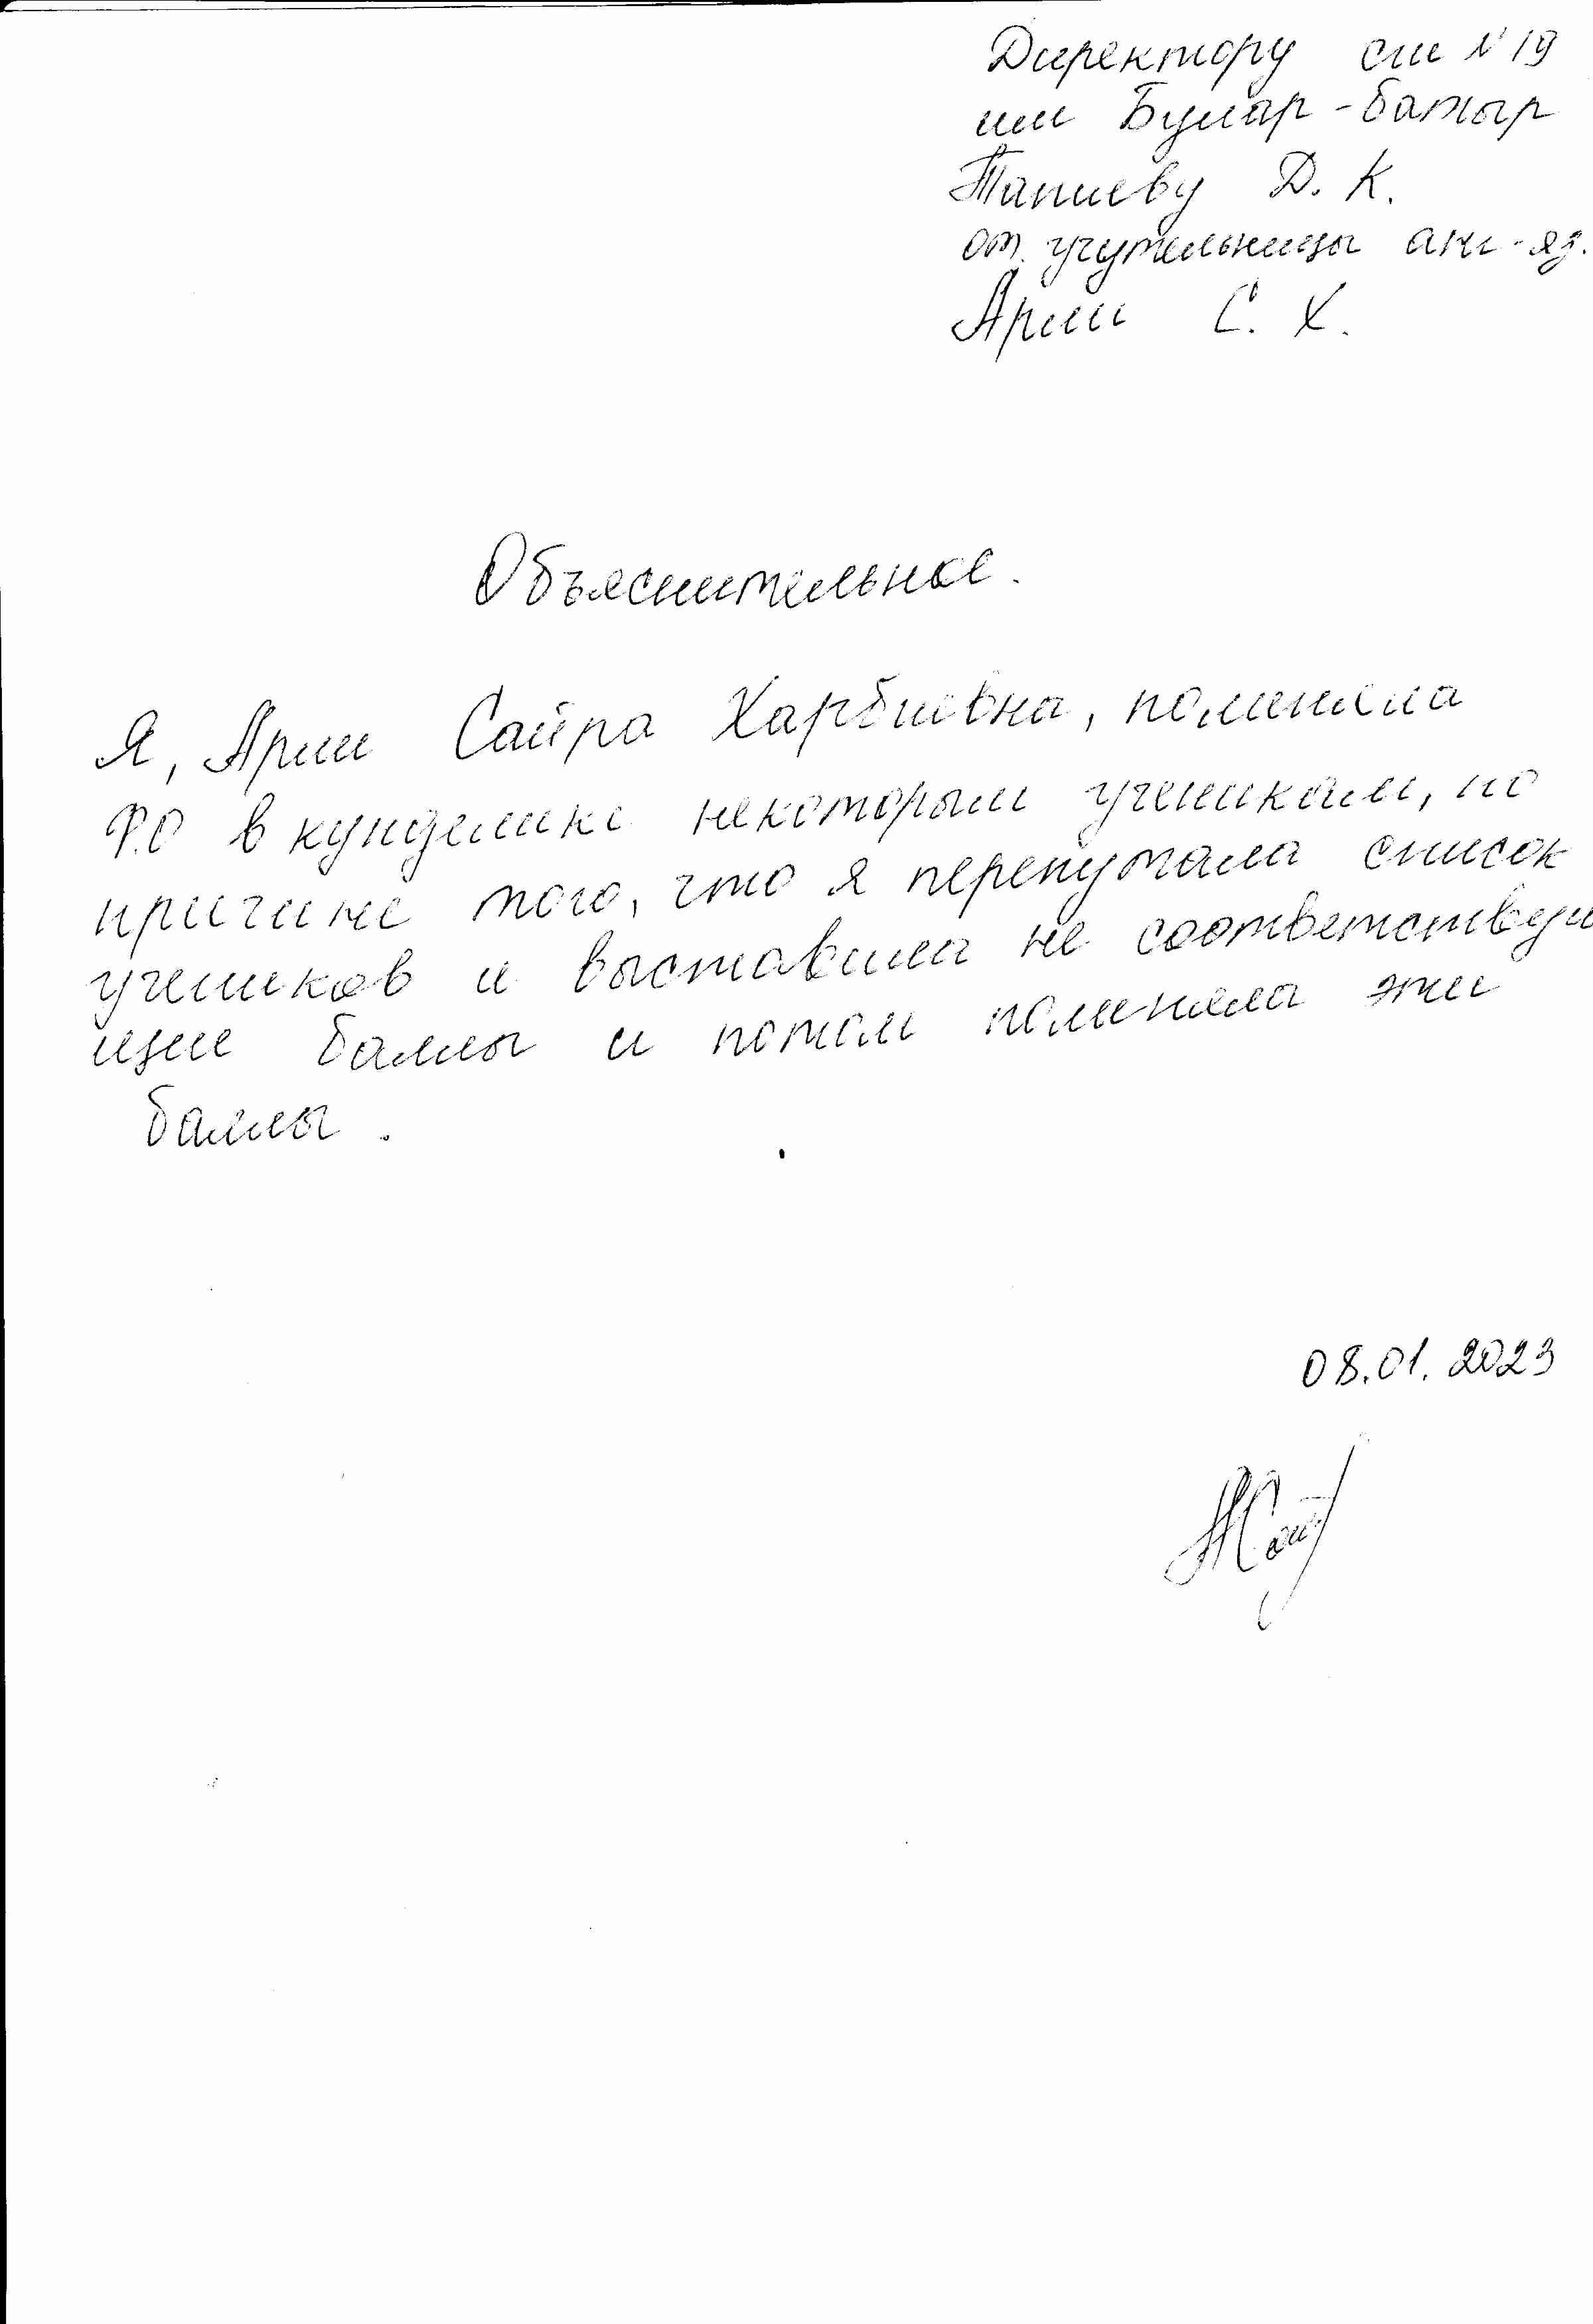 Директору сш N 19
им Бумар-батыр
Тапиеву Д. К.
от учутельницы анг-яз.
Арши С. Х.
Объяснительное.
Я, Арши Сайра Харбиевна, поменяла
Ф.О в кунделике некоторым ученикам, по
причине того, что я перепутала список
учеников и выставила не соответствую
щие баллы и потом поменяла эти
баллы.
08.01.2023